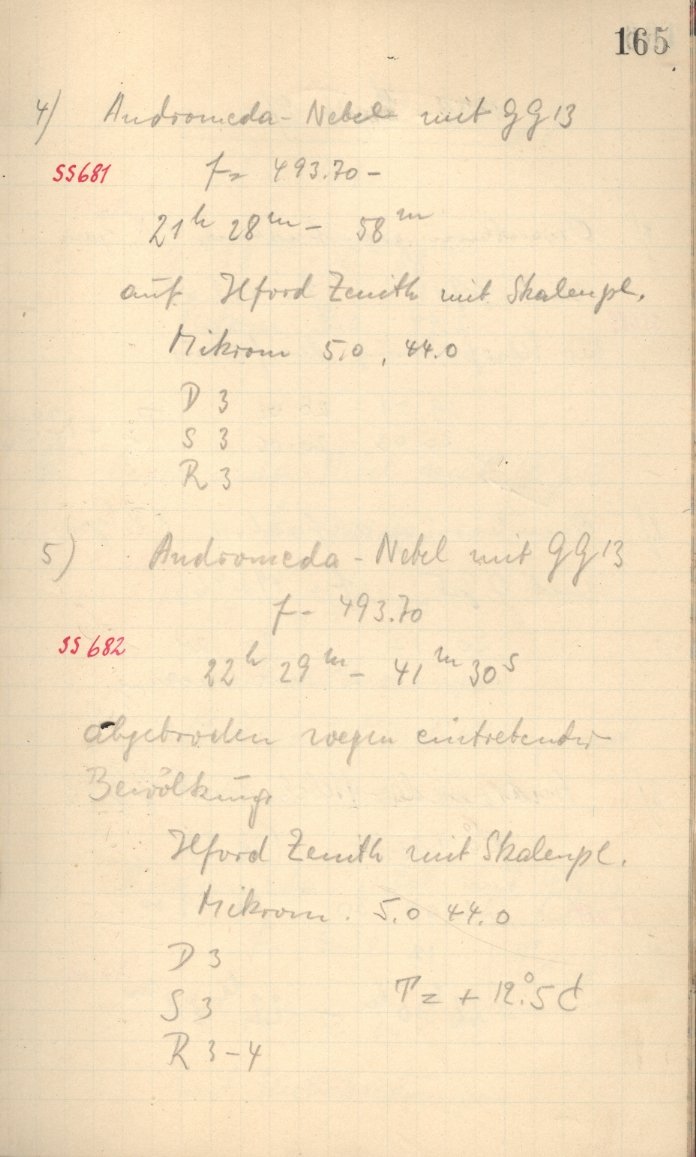 165
4) Andromeda-Nebel mit GG13
SS681
f= 493.70 -
21h 28m - 58m
auf Ilford Zenith mit Skalenpl.
Mikrom 5.0, 44.0
D 3
S 3
R 3
5) Andromeda-Nebel mit GG13
f- 493.70
SS 682
22h 29m - 41m 30s
abgebrochen wegen eintretender
Bewölkung
Ilford Zenith mit Skalenpl.
Mikrom. 5.0 44.0
D 3
S 3
T= + 12°.5 C
R 3-4